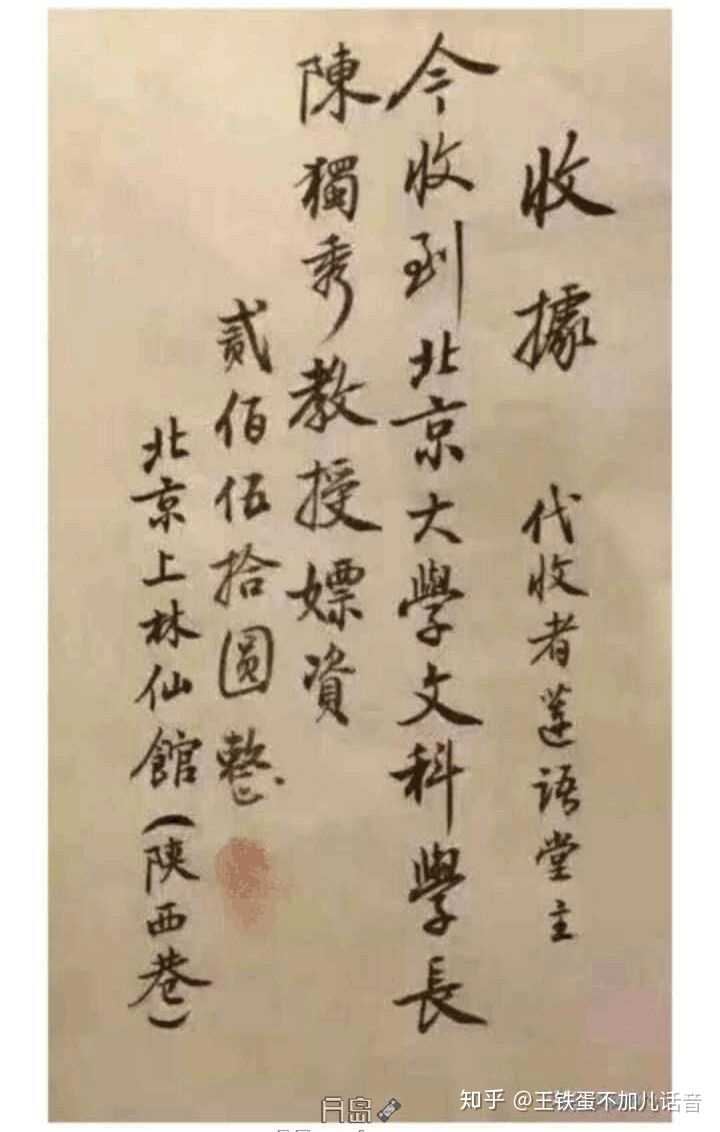 收據
代收者蓮語堂主
今收到北京大學文科學長
陳獨秀教授嫖資
貳佰伍拾圓整
北京上林仙館(陝西巷)
知乎 @王铁蛋不加儿话音